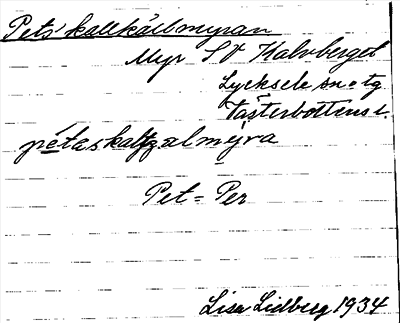 Pets kallkälbmyran
Myr SV Kalvberget
Lycksele sn o tg
Västerbottens l.
pétaskallkalmýra
Pet = Per
Lisa Lidberg 1934